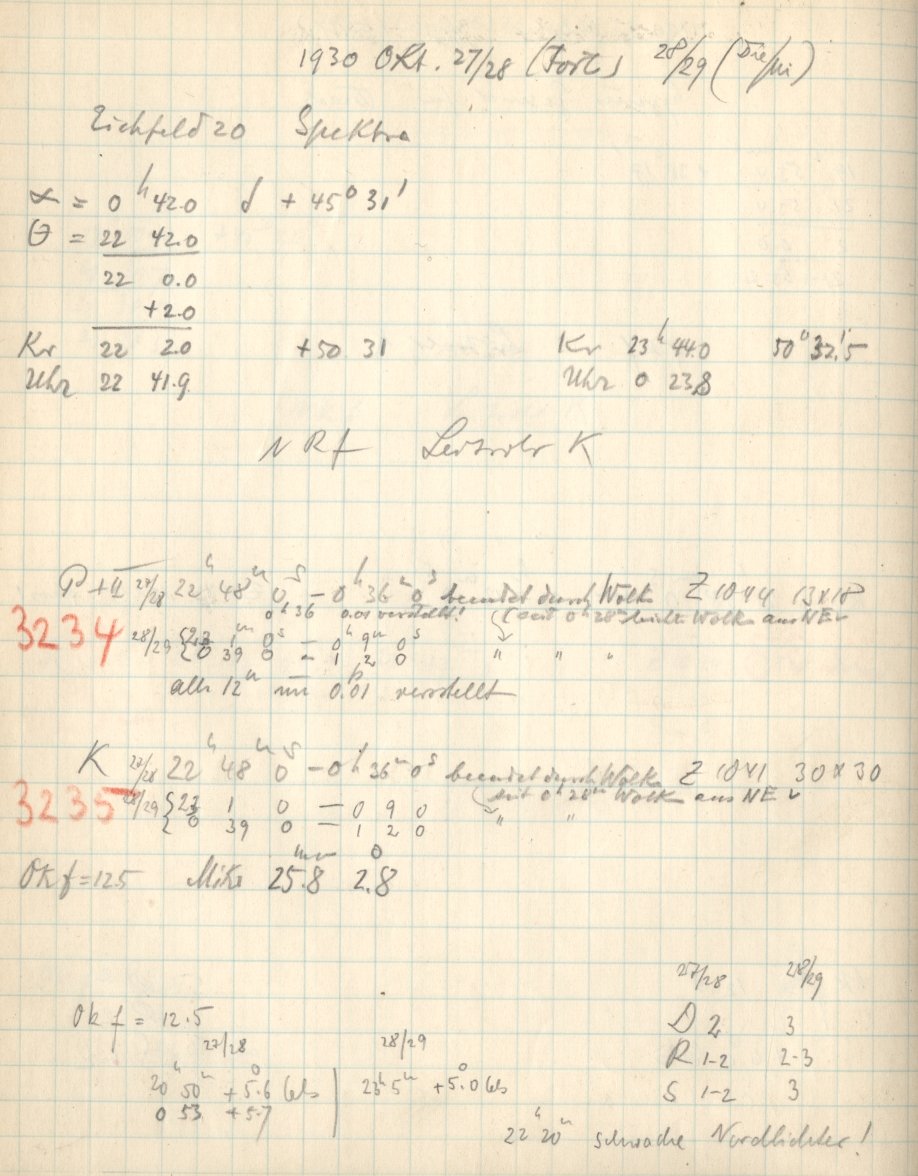 1930 Okt. 27/28 (Forts) 28/29 (Die/Mi)
Eichfeld 20 Spektra
α = 0ʰ 42.0 δ + 45° 31'
Θ = 22 42.0
22 0.0
+2.0
Kr 22 2.0 +50 31 Kr 23ʰ 44.0 50° 32.'5
Uhr 22 41.9 Uhr 0 23.8
N R f Leitrohr K
27/28 22ʰ 48ᵐ 0ˢ – 0ʰ 36ᵐ 0ˢ beendet durch Wolken Z 1044 13x18
0ʰ 36 0.01 verstellt! (seit 0ʰ 28ᵐ leichte Wolken aus NE
3234 28/29 {23 1ᵐ 0ˢ – 0ʰ 9ᵐ 0ˢ
{0 39 0 – 1 2 0 " " "
alle 12ᵐ um 0.01 verstellt
K 27/28 22ʰ 48ᵐ 0ˢ – 0ʰ 36ᵐ 0ˢ beendet durch Wolken Z 1041 30x30
(seit 0ʰ 28ᵐ Wolken aus NE
3235 28/29 {23 1 0 – 0 9 0 " "
{0 39 0 – 1 2 0
Ok f=12.5 Mikr 25.8ᵐᵐ 2.8°
27/28 28/29
Ok f = 12.5 D 2 3
27/28 28/29 R 1-2 2-3
20ʰ 50ᵐ +5.°6 Cels | 23ʰ 5ᵐ +5.°0 Cels S 1-2 3
0 53 +5.7
22ʰ 20ᵐ schwache Nordlichter!